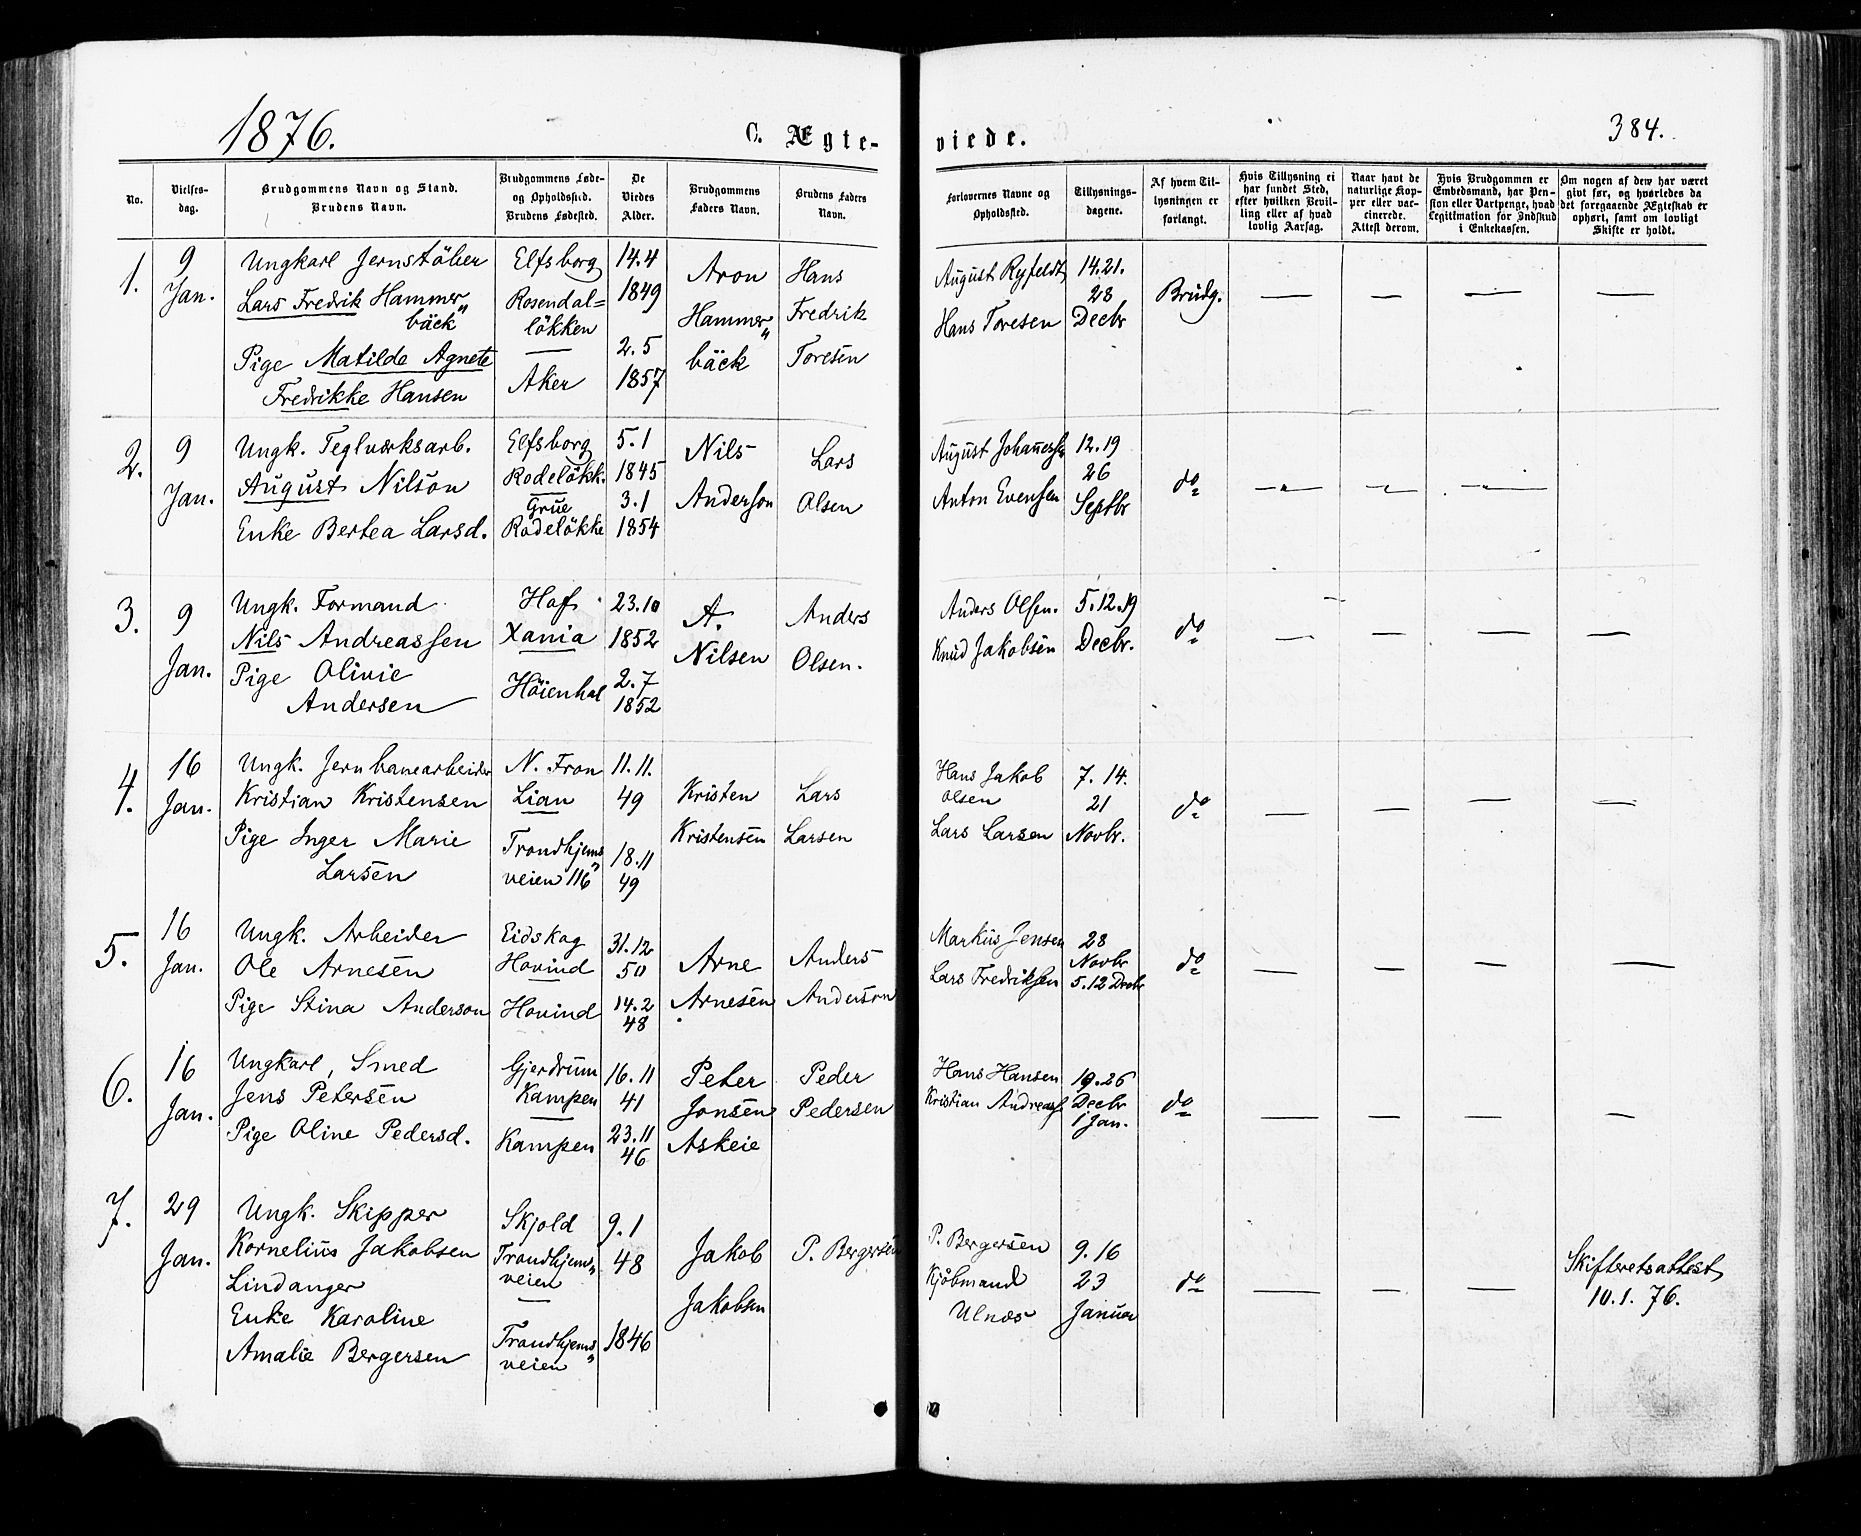 1876.
C. Ægte-
viede.
384.
No.
Vielses-
dag.
Brudgommens Navn og Stand.
Brudens Navn.
Brudgommens Føde-
og Opholdssted.
Brudens Fødested.
De
Viedes
Alder.
Brudgommens
Faders Navn.
Brudens Faders
Navn.
Forlovernes Navne og
Opholdssted.
Tillysnings-
dagene.
Af hvem Til-
lysningen er
forlangt.
Hvis Tillysning ei
har fundet Sted,
efter hvilken Bevil-
ling eller af hvad
lovlig Aarsag.
Naar havt de
naturlige Kop-
per eller vac-
cinerede.
Attest derom.
Hvis Brudgommen er
Embedsmand, har Pen-
sion eller Vartpenge, hvad
Legitimation for Indskud
i Enkekassen.
Om nogen af dem har været
gift før, og hvorledes da
det foregaaende Ægteskab er
ophørt, samt om lovligt
Skifte er holdt.
1.
9
Jan.
Ungkarl Jernstöber
Lars Fredrik Hammer„
bäck
Pige Matilde Agnete
Fredrikke Hansen
Elfsborg
Rosendal=
løkken
Aker
14.4
1849
2.5
1857
Aron
Hammer„
bäck
Hans
Fredrik
Toresen
August Ryfeldt
Hans Toresen
14.21.
28
Decbr
Brudg.
2.
9
Jan.
Ungk. Teglværksarb.
August Nilson
Enke Bertea Larsd.
Elfsborg
Rodeløkk.
Grue
Rodeløkke
5.1
1845
3.1
1854
Nils
Anderson
Lars
Olsen
August Johannesse
Anton Evensen
12.19
26
Septbr
do
3.
9
Jan.
Ungk. Formand
Nils Andreassen
Pige Olivie
Andersen
Hof
Xania
Høienhal
23.10
1852
2.7
1852
A.
Nilsen
Anders
Olsen.
Anders Olsen.
Knud Jakobsen
5.12.19
Decbr.
do
4.
16
Jan.
Ungk. Jernbanearbeider
Kristian Kristensen
Pige Inger Marie
Larsen
N. Fron
Lian
Trondhjems„
veien 116
11.11.
49
18.11
49
Kristen
Kristensen
Lars
Larsen
Hans Jakob
Olsen
Lars Larsen
7. 14.
21
Novbr.
do
5.
16
Jan.
Ungk. Arbeider
Ole Arnesen
Pige Stina Anderson
Eidskog
Hovind
Hovind
31.12
50
14.2
48
Arne
Arnesen
Anders
Anderson
Markus Jensen
Lars Fredriksen
28
Novbr
5.12 Decbr
do
6.
16
Jan.
Ungkarl, Smed
Jens Petersen
Pige Oline Pedersd.
Gjerdrum
Kampen
Kampen
16.11
41
23.11
46
Peter
Jonsen
Askeie
Peder
Pedersen
Hans Hansen
Kristian Andreass
19.26
Decbr
1 Jan.
do
7.
29
Jan.
Ungk. Skipper
Kornelius Jakobsen
Lindanger
Enke Karoline
Amalie Bergersen
Skjold
Trondhjems„
veien
Trondhjems„
veien
9.1
48
1846
Jakob
Jakobsen
P. Bergersen
P. Bergersen
Kjöbmand
Ulnæs
9.16
23
Januar
do
Skifteretsattest
10.1.76.